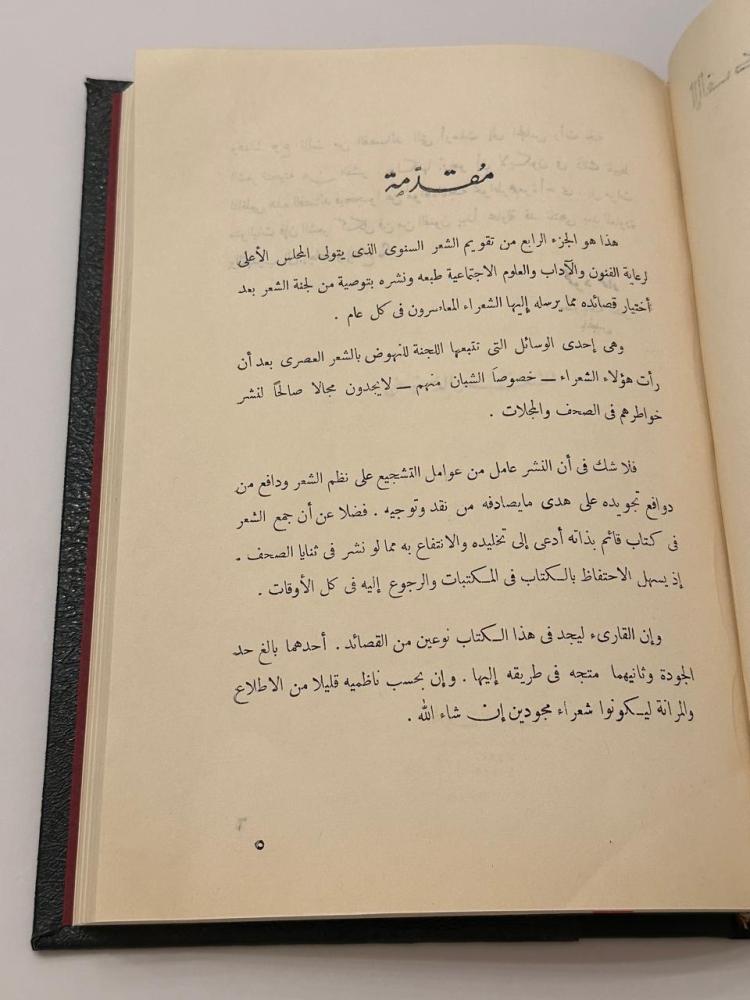 مُقدّمة
هذا هو الجزء الرابع من تقويم الشعر السنوى الذى يتولى المجلس الأعلى
لرعاية الفنون والآداب والعلوم الاجتماعية طبعه ونشره بتوصية من لجنة الشعر بعد
أختيار قصائده مما يرسله إليها الشعراء المعاسرون فى كل عام .
وهى إحدى الوسائل التى تتبعها اللجنة للنهوض بالشعر العصرى بعد أن
رأت هؤلاء الشعراء — خصوصاً الشبان منهم — لايجدون مجالا صالحًا لنشر
خواطرهم فى الصحف والمجلات .
فلا شك فى أن النشر عامل من عوامل التشجيع على نظم الشعر ودافع من
دوافع تجويده على هدى مايصادفه من نقد وتوجيه . فضلا عن أن جمع الشعر
فى كتاب قائم بذاته أدعى إلى تخليده والانتفاع به مما لو نشر فى ثنايا الصحف .
إذ يسهل الاحتفاظ بالكتاب فى المكتبات والرجوع إليه فى كل الأوقات .
وإن القارىء ليجد فى هذا الكتاب نوعين من القصائد . أحدهما بالغ حد
الجودة وثانيهما متجه فى طريقه إليها . وإن بحسب ناظميه قليلا من الاطلاع
والمرانة ليكونوا شعراء مجودين إن شاء الله .
٥